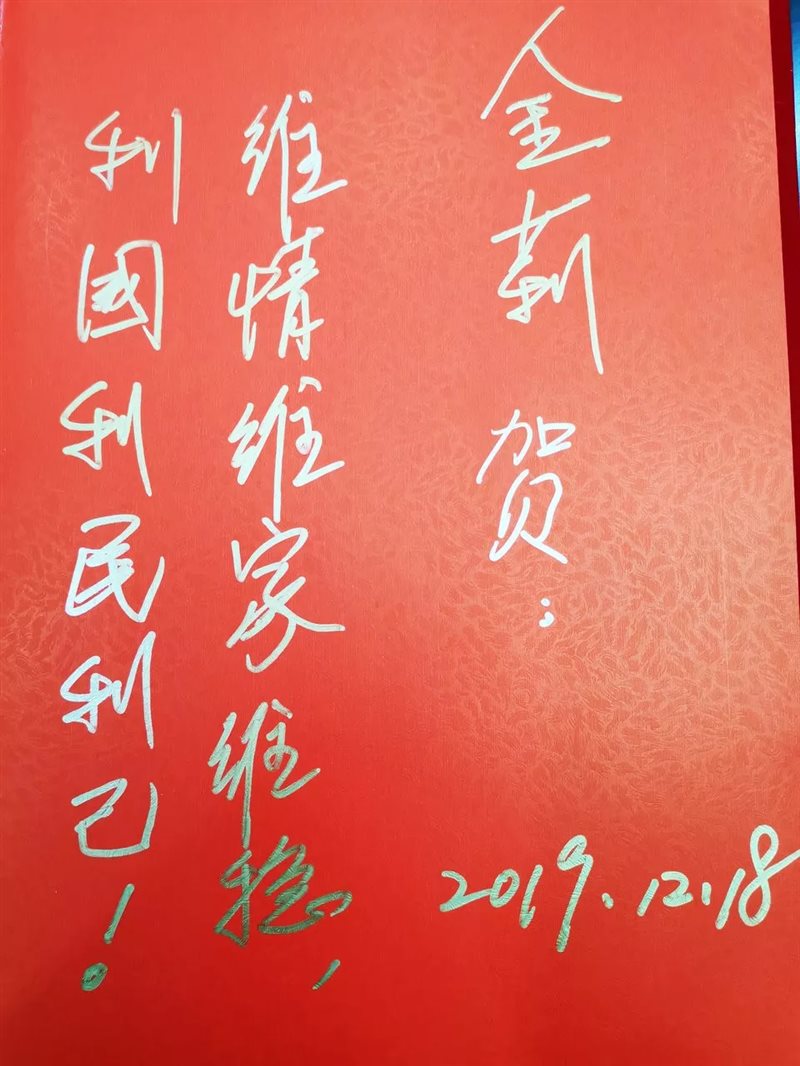 金莉贺：
维情维家维稳，
利國利民利己！
2019.12.18